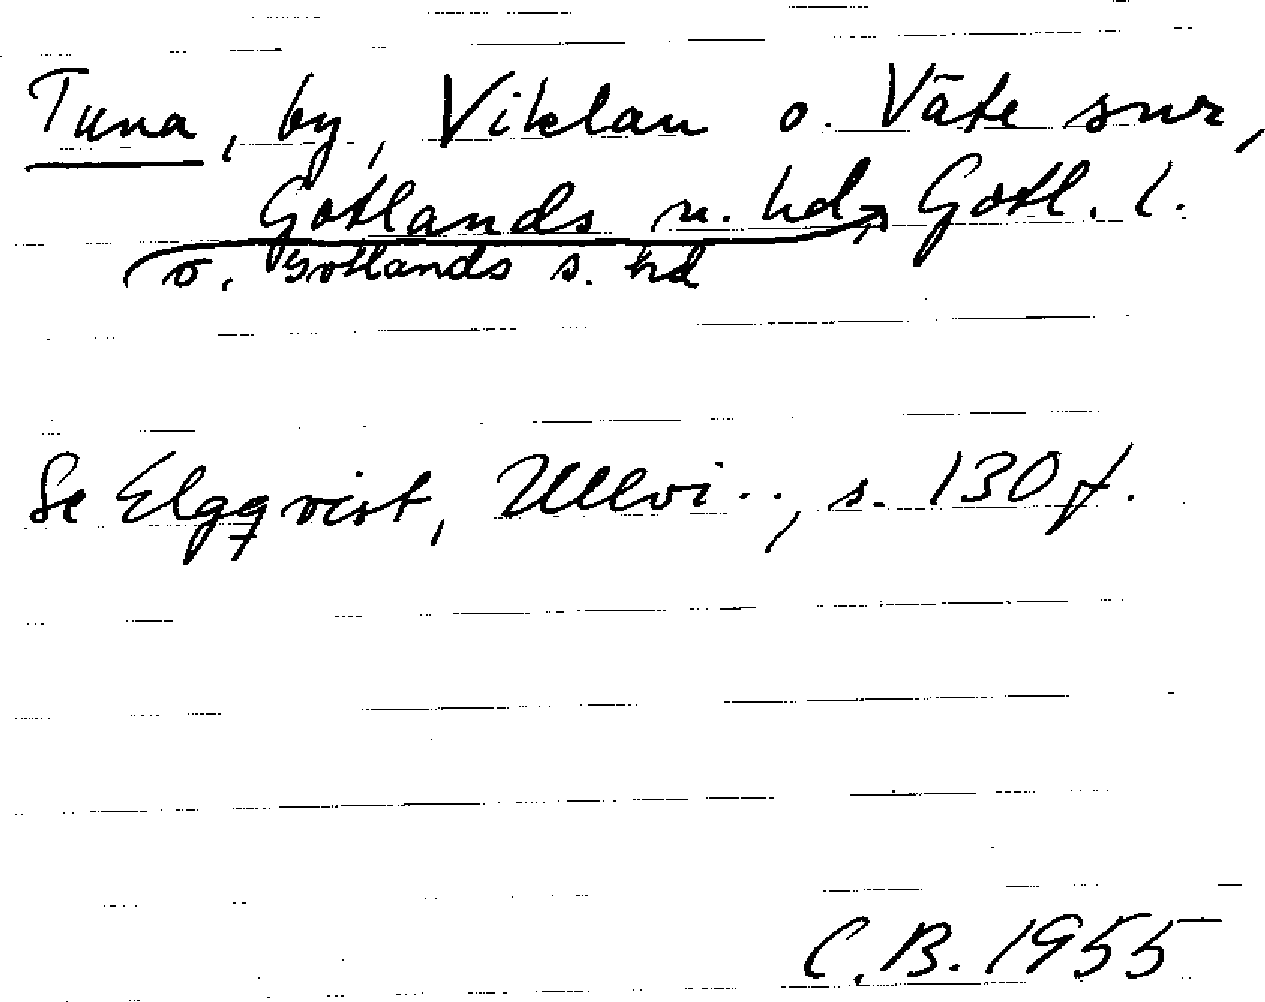 Tuna, by, Viklau o. Väte snr,
Gotlands n. hd, Gotl. l.
o. Gotlands s. hd
Se Elgqvist, Ullvi.., s. 130 f.
C.B. 1955